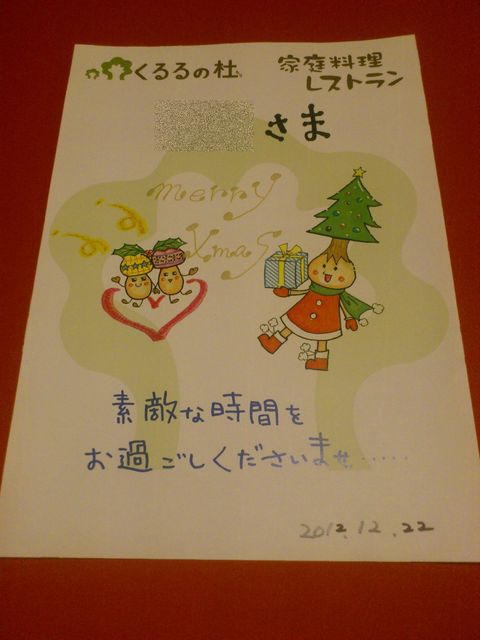 くるるの杜
家庭料理
レストラン
さま
merry
Xmas
素敵な時間を
お過ごしくださいませ.....
2012.12.22